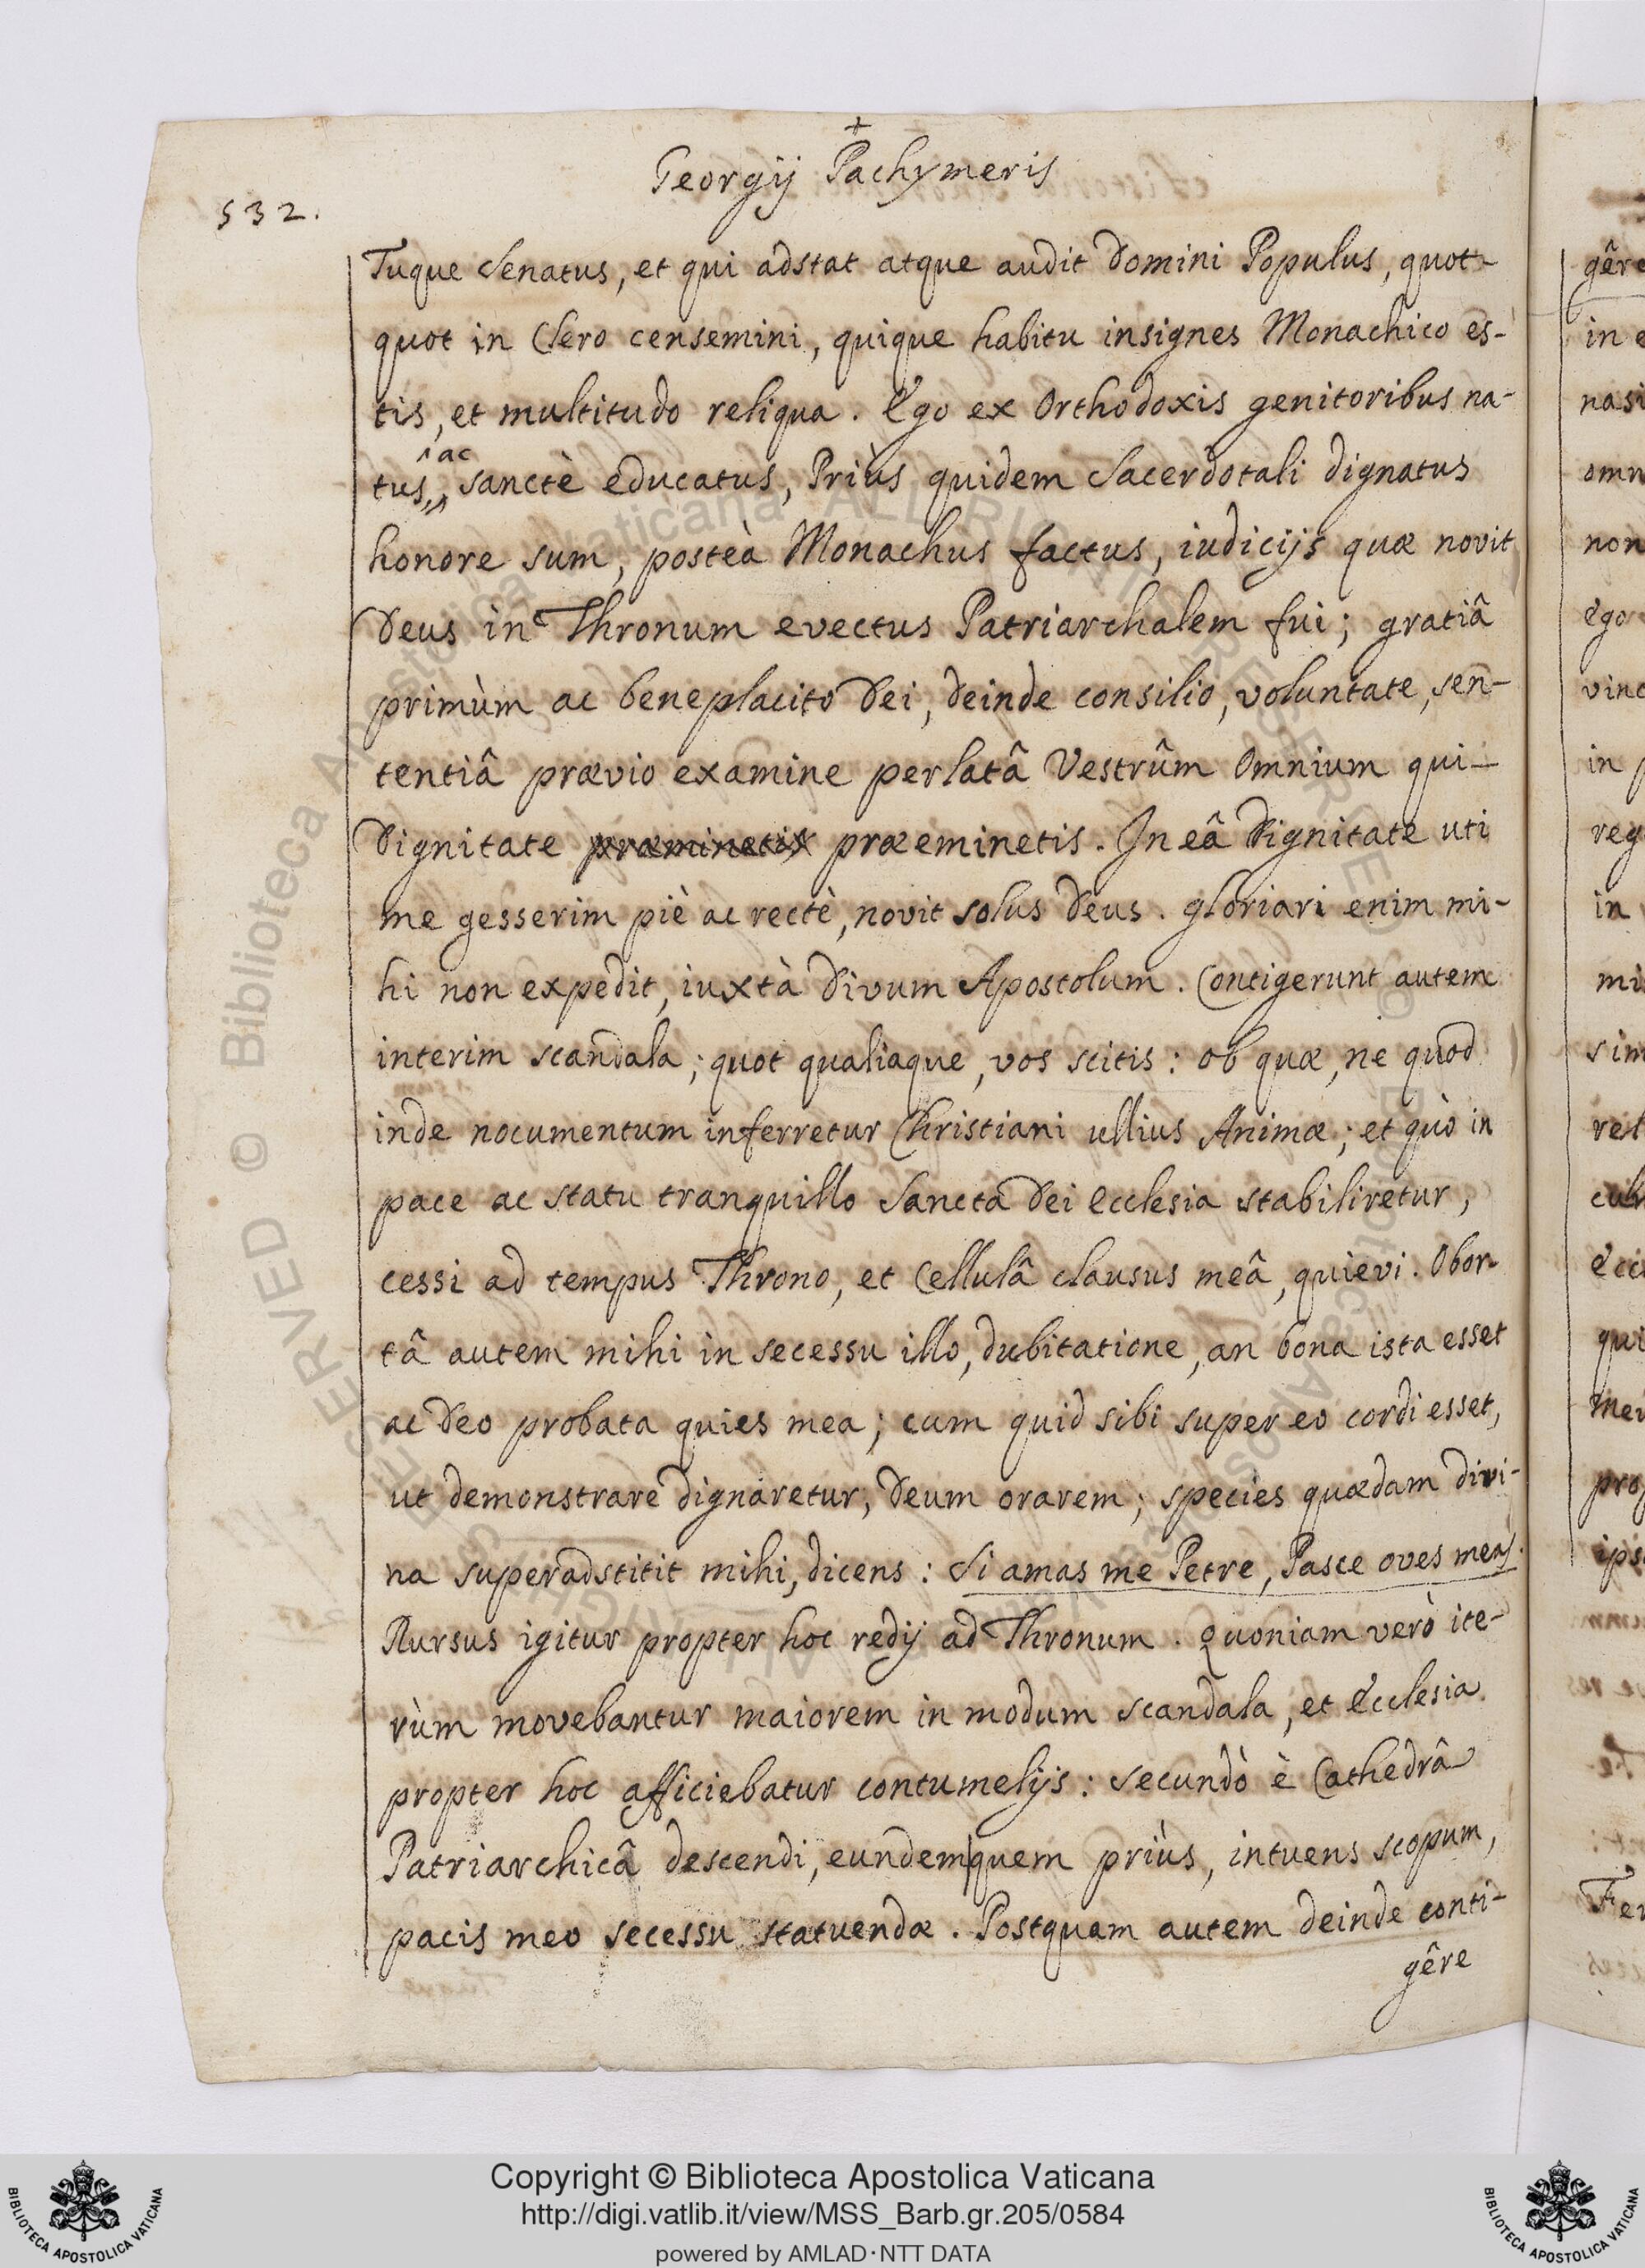 +
Georgij Pachymeris
532.
Tuque Senatus, et qui adstat atque audit Domini Populus, quot-
quot in Clero censemini, quique habitu insignes Monachico es-
tis, et multitudo reliqua. Ego ex Orthodoxis genitoribus na-
ac
tus, sanctè educatus, Priùs quidem Sacerdotali dignatus
honore sum, posteà Monachus factus, iudicijs quæ novit
Deus in Thronum evectus Patriarchalem fui; gratiâ
primùm ac beneplacito Dei, deinde consilio, voluntate, sen-
tentiâ prævio examine perlatâ Vestrûm Omnium qui
dignitate præminetis præeminetis. In eâ dignitate uti
me gesserim piè ac rectè, novit solus Deus. gloriari enim mi-
hi non expedit, iuxtà Divum Apostolum. Contigerunt autem
interim scandala; quot qualiaque, vos scitis: ob quæ, ne quod
inde nocumentum inferretur Christiani ullius Animæ; et quò in
pace ac statu tranquillo Sancta Dei Ecclesia stabiliretur,
cessi ad tempus Throno, et Cellulâ clausus meâ, quievi. Obor-
tâ autem mihi in secessu illo, dubitatione, an bona ista esset
ac Deo probata quies mea; cum quid sibi super eo cordi esset,
ut demonstrare dignaretur, Deum orarem; species quædam divi-
na superadstitit mihi, dicens: Si amas me Petre, Pasce oves meas.
Rursus igitur propter hoc redij ad Thronum. Quoniam verò ite-
rùm movebantur maiorem in modum scandala, et Ecclesia
propter hoc afficiebatur contumelijs: secundò è Cathedrâ
Patriarchicâ descendi, eundem quem priùs, intuens scopum,
pacis meo secessu statuendæ. Postquam autem deinde conti-
gêre
Copyright © Biblioteca Apostolica Vaticana
http://digi.vatlib.it/view/MSS_Barb.gr.205/0584
powered by AMLAD·NTT DATA
BIBLIOTECA APOSTOLICA VATICANA
BIBLIOTECA APOSTOLICA VATICANA